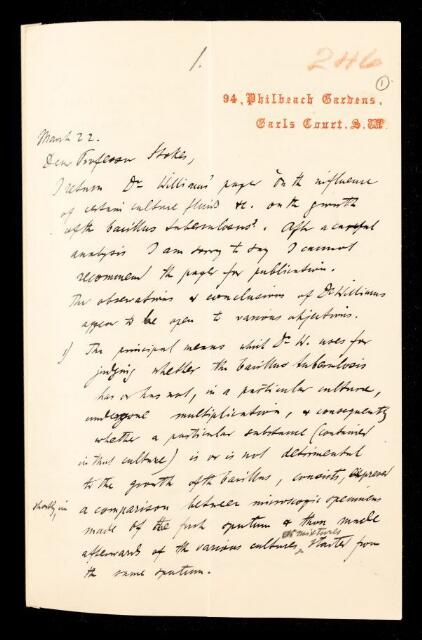 1.
246
1
94, Philbeach Gardens,
Earls Court. S.W.
March 22.
Dear Professor Stokes,
I return Dr Williams' paper "On the influence
of certain culture fluids &c. on the growth
of the bacillus tuberculosus". After a careful
analysis I am sorry to say I cannot
recommend the paper for publication.
The observations & conclusions of Dr Williams
appear to be open to various objections.
1) The principal means which Dr W. uses for
judging whether the bacillus tuberculosis
has or has not, in a particular culture,
undergone multiplication, & consequently
whether a particular substance (contained
in that culture) is or is not detrimental
to the growth of the bacillus, consists, expressed
shortly, in a comparison between microscopic specimens
made of the fresh sputum & those made
afterwards of the various cultures, or mixtures started from
the same sputum.